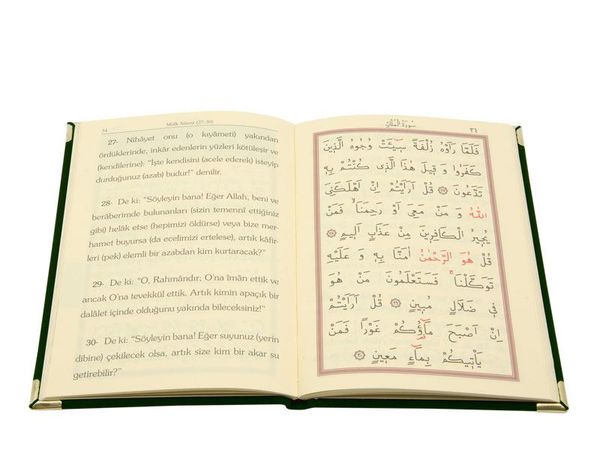 34
Mülk Sûresi (27-30)
27- Nihâyet onu (o kıyâmeti) yakından
ördüklerinde, inkâr edenlerin yüzleri kötüleşir ve
(kendilerine): “İşte kendisini (acele ederek) isteyip
durduğunuz (azab) budur!” denilir.
28- De ki: “Söyleyin bana! Eğer Allah, beni ve
berâberimde bulunanları (sizin temennî ettiğiniz
gibi) helâk etse (hepimizi öldürse) veya bize mer-
hamet buyursa (da ecelimizi ertelese), artık kâfir-
leri (pek) elemli bir azabdan kim kurtaracak?”
29- De ki: “O, Rahmândır; O'na îman ettik ve
ancak O'na tevekkül ettik. Artık kimin apaçık bir
dalâlet içinde olduğunu yakında bileceksiniz!”
30- De ki: “Söyleyin bana! Eğer suyunuz (yerin
dibine) çekilecek olsa, artık size kim bir akar su
getirebilir?”
سورة الملك
٣٤
فَلَمَّا رَاَوْهُ زُلْفَةً سٖٓيـَٔتْ وُجُوهُ الَّذٖينَ
كَفَرُوا وَ قٖيلَ هٰذَا الَّذٖى كُنْتُمْ بِهٖ
تَدَّعُونَ ۞ قُلْ اَرَاَيْتُمْ اِنْ اَهْلَكَنِىَ
اللّٰهُ وَ مَنْ مَعِىَ اَوْ رَحِمَنَا فَمَنْ
يُجٖيرُ الْكَافِرٖينَ مِنْ عَذَابٍ اَلٖيمٍ ۞
قُلْ هُوَ الرَّحْمٰنُ اٰمَنَّا بِهٖ وَ عَلَيْهِ
تَوَكَّلْنَا فَسَتَعْلَمُونَ مَنْ هُوَ
فٖى ضَلَالٍ مُبٖينٍ ۞ قُلْ اَرَاَيْتُمْ
اِنْ اَصْبَحَ مَٓاؤُكُمْ غَوْرًا فَمَنْ
يَاْتٖيكُمْ بِمَٓاءٍ مَعٖينٍ ۞